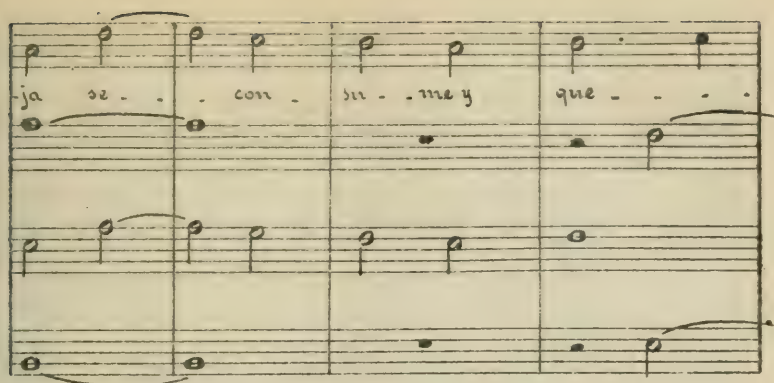 -ja se - . . con - su - . me y que - - . .